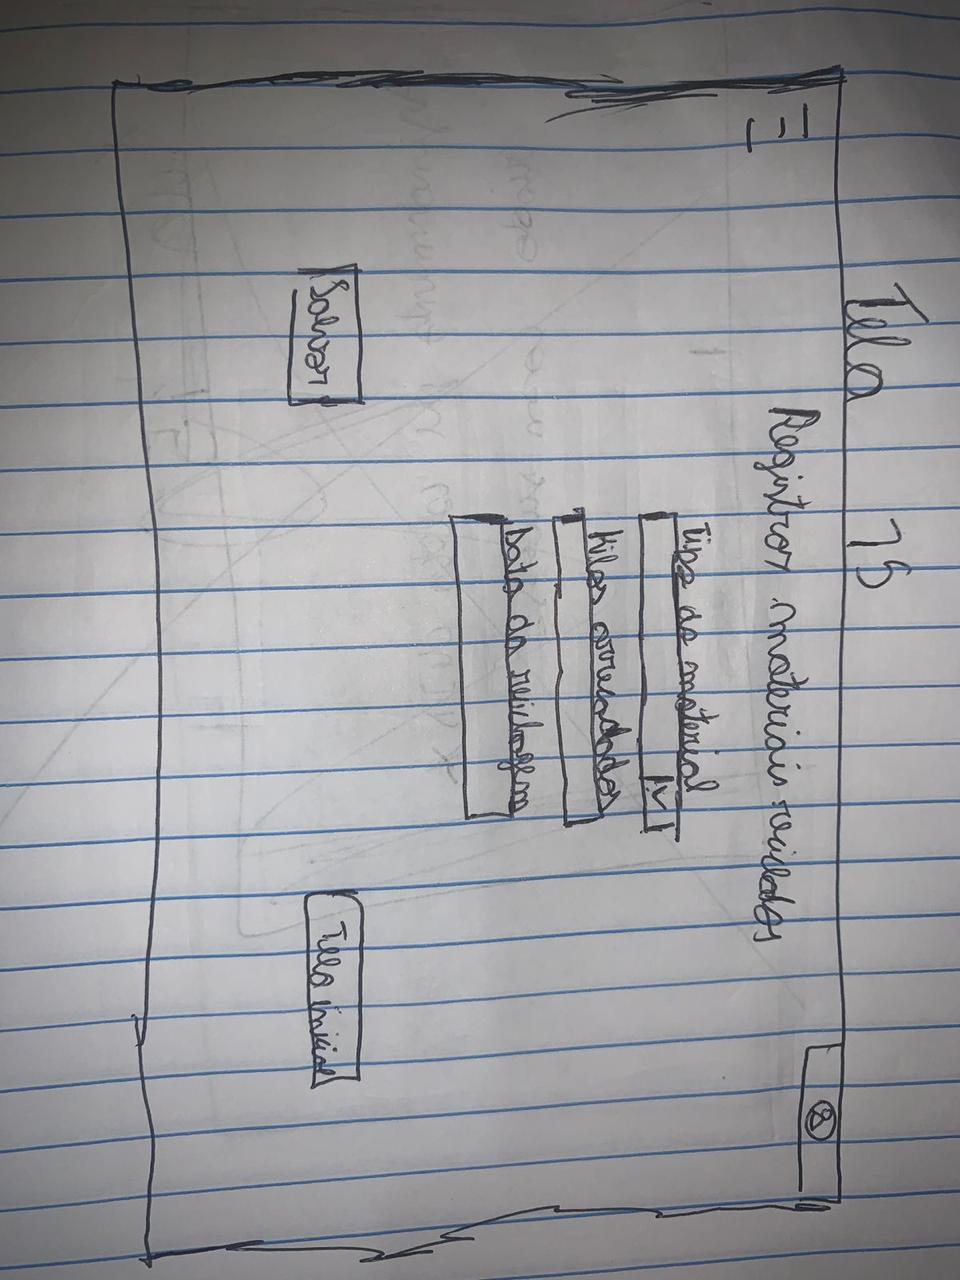 Tela 15
Registrar materiais reciclados
Tipo de material
Kilos arrecadados
Data da reciclagem
Salvar
Tela inicial